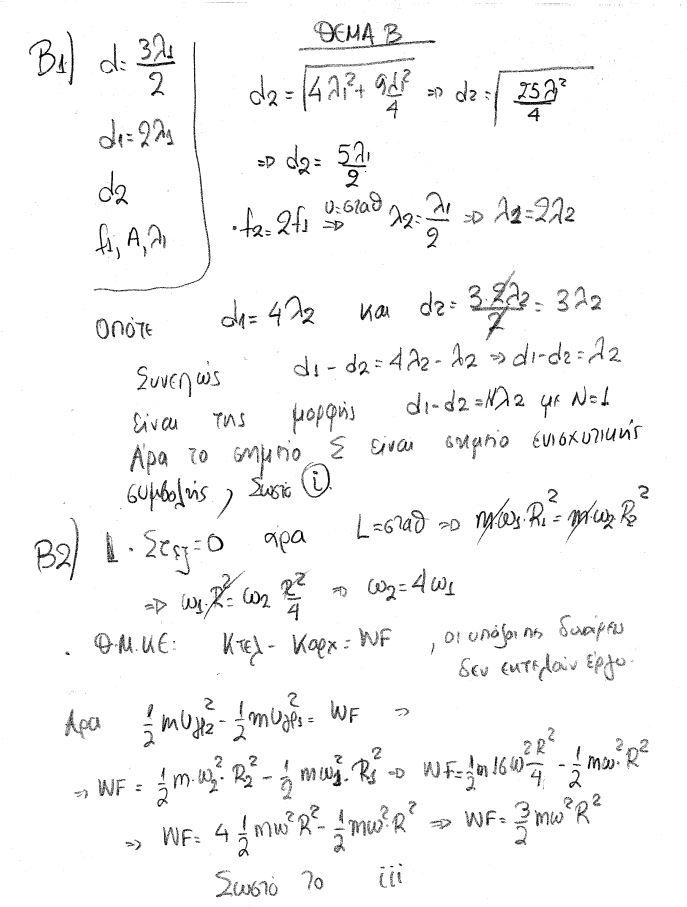 ΘΕΜΑ Β
Β1) d = 3λ1/2
d1 = 2λ1
d2
f1, A, λ1
d2 = √(4λ1² + 9λ1²/4) ⇒ d2 = √(25λ1²/4)
⇒ d2 = 5λ1/2
· f2 = 2f1 ⇒(υ=σταθ) λ2 = λ1/2 ⇒ λ1 = 2λ2
οπότε d1 = 4λ2 και d2 = 3·2λ2/2 = 3λ2
Συνεπώς d1 - d2 = 4λ2 - λ2 ⇒ d1 - d2 = λ2
είναι της μορφής d1 - d2 = Νλ2 με Ν=1
Άρα το σημείο Σ είναι σημείο ενισχυτικής
συμβολής, Σωστό (i).
Β2) · Στεξ = 0 άρα L = σταθ ⇒ mω1·R1² = mω2 R2²
⇒ ω1·R² = ω2 R²/4 ⇒ ω2 = 4ω1
· Θ.Μ.Κ.Ε: Κτελ - Καρχ = WF , οι υπόλοιπες δυνάμεις
δεν εκτελούν έργο.
Άρα 1/2 mυγρ2² - 1/2 mυγρ1² = WF ⇒
⇒ WF = 1/2 m·ω2²·R2² - 1/2 mω1²·R1² ⇒ WF = 1/2 m 16ω² R²/4 - 1/2 mω²·R²
⇒ WF = 4 1/2 mω²R² - 1/2 mω²·R² ⇒ WF = 3/2 mω²R²
Σωστό το iii